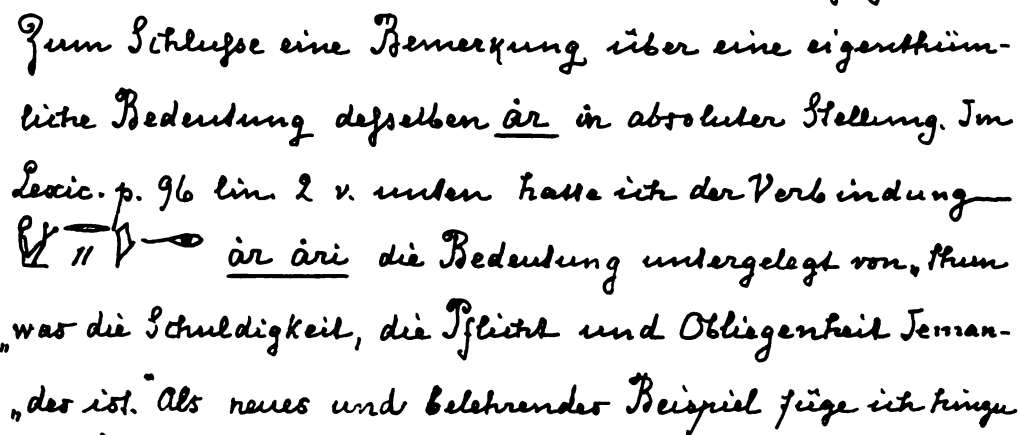 Zum Schlufse eine Bemerkung über eine eigenthüm-
liche Bedeutung defselben ȧr in absoluter Stellung. Im
Lexic. p. 96 lin. 2 v. unten hatte ich der Verbindung
ȧr ȧri die Bedeutung untergelegt von „thun
„was die Schuldigkeit, die Pflicht und Obliegenheit Jeman-
„des ist.“ Als neues und belehrendes Beispiel füge ich hinzu